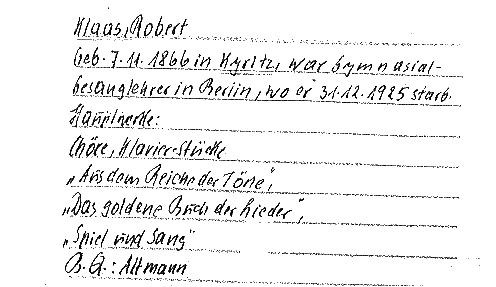 Klaas, Robert
Geb. 7.11.1866 in Kyritz, war Gymnasial-
gesanglehrer in Berlin, wo er 31.12.1925 starb.
Hauptwerke:
Chöre, Klavierstücke
„Aus dem Reiche der Töne",
„Das goldene Buch der Lieder",
„Spiel und Sang"
B. Q.: Altmann